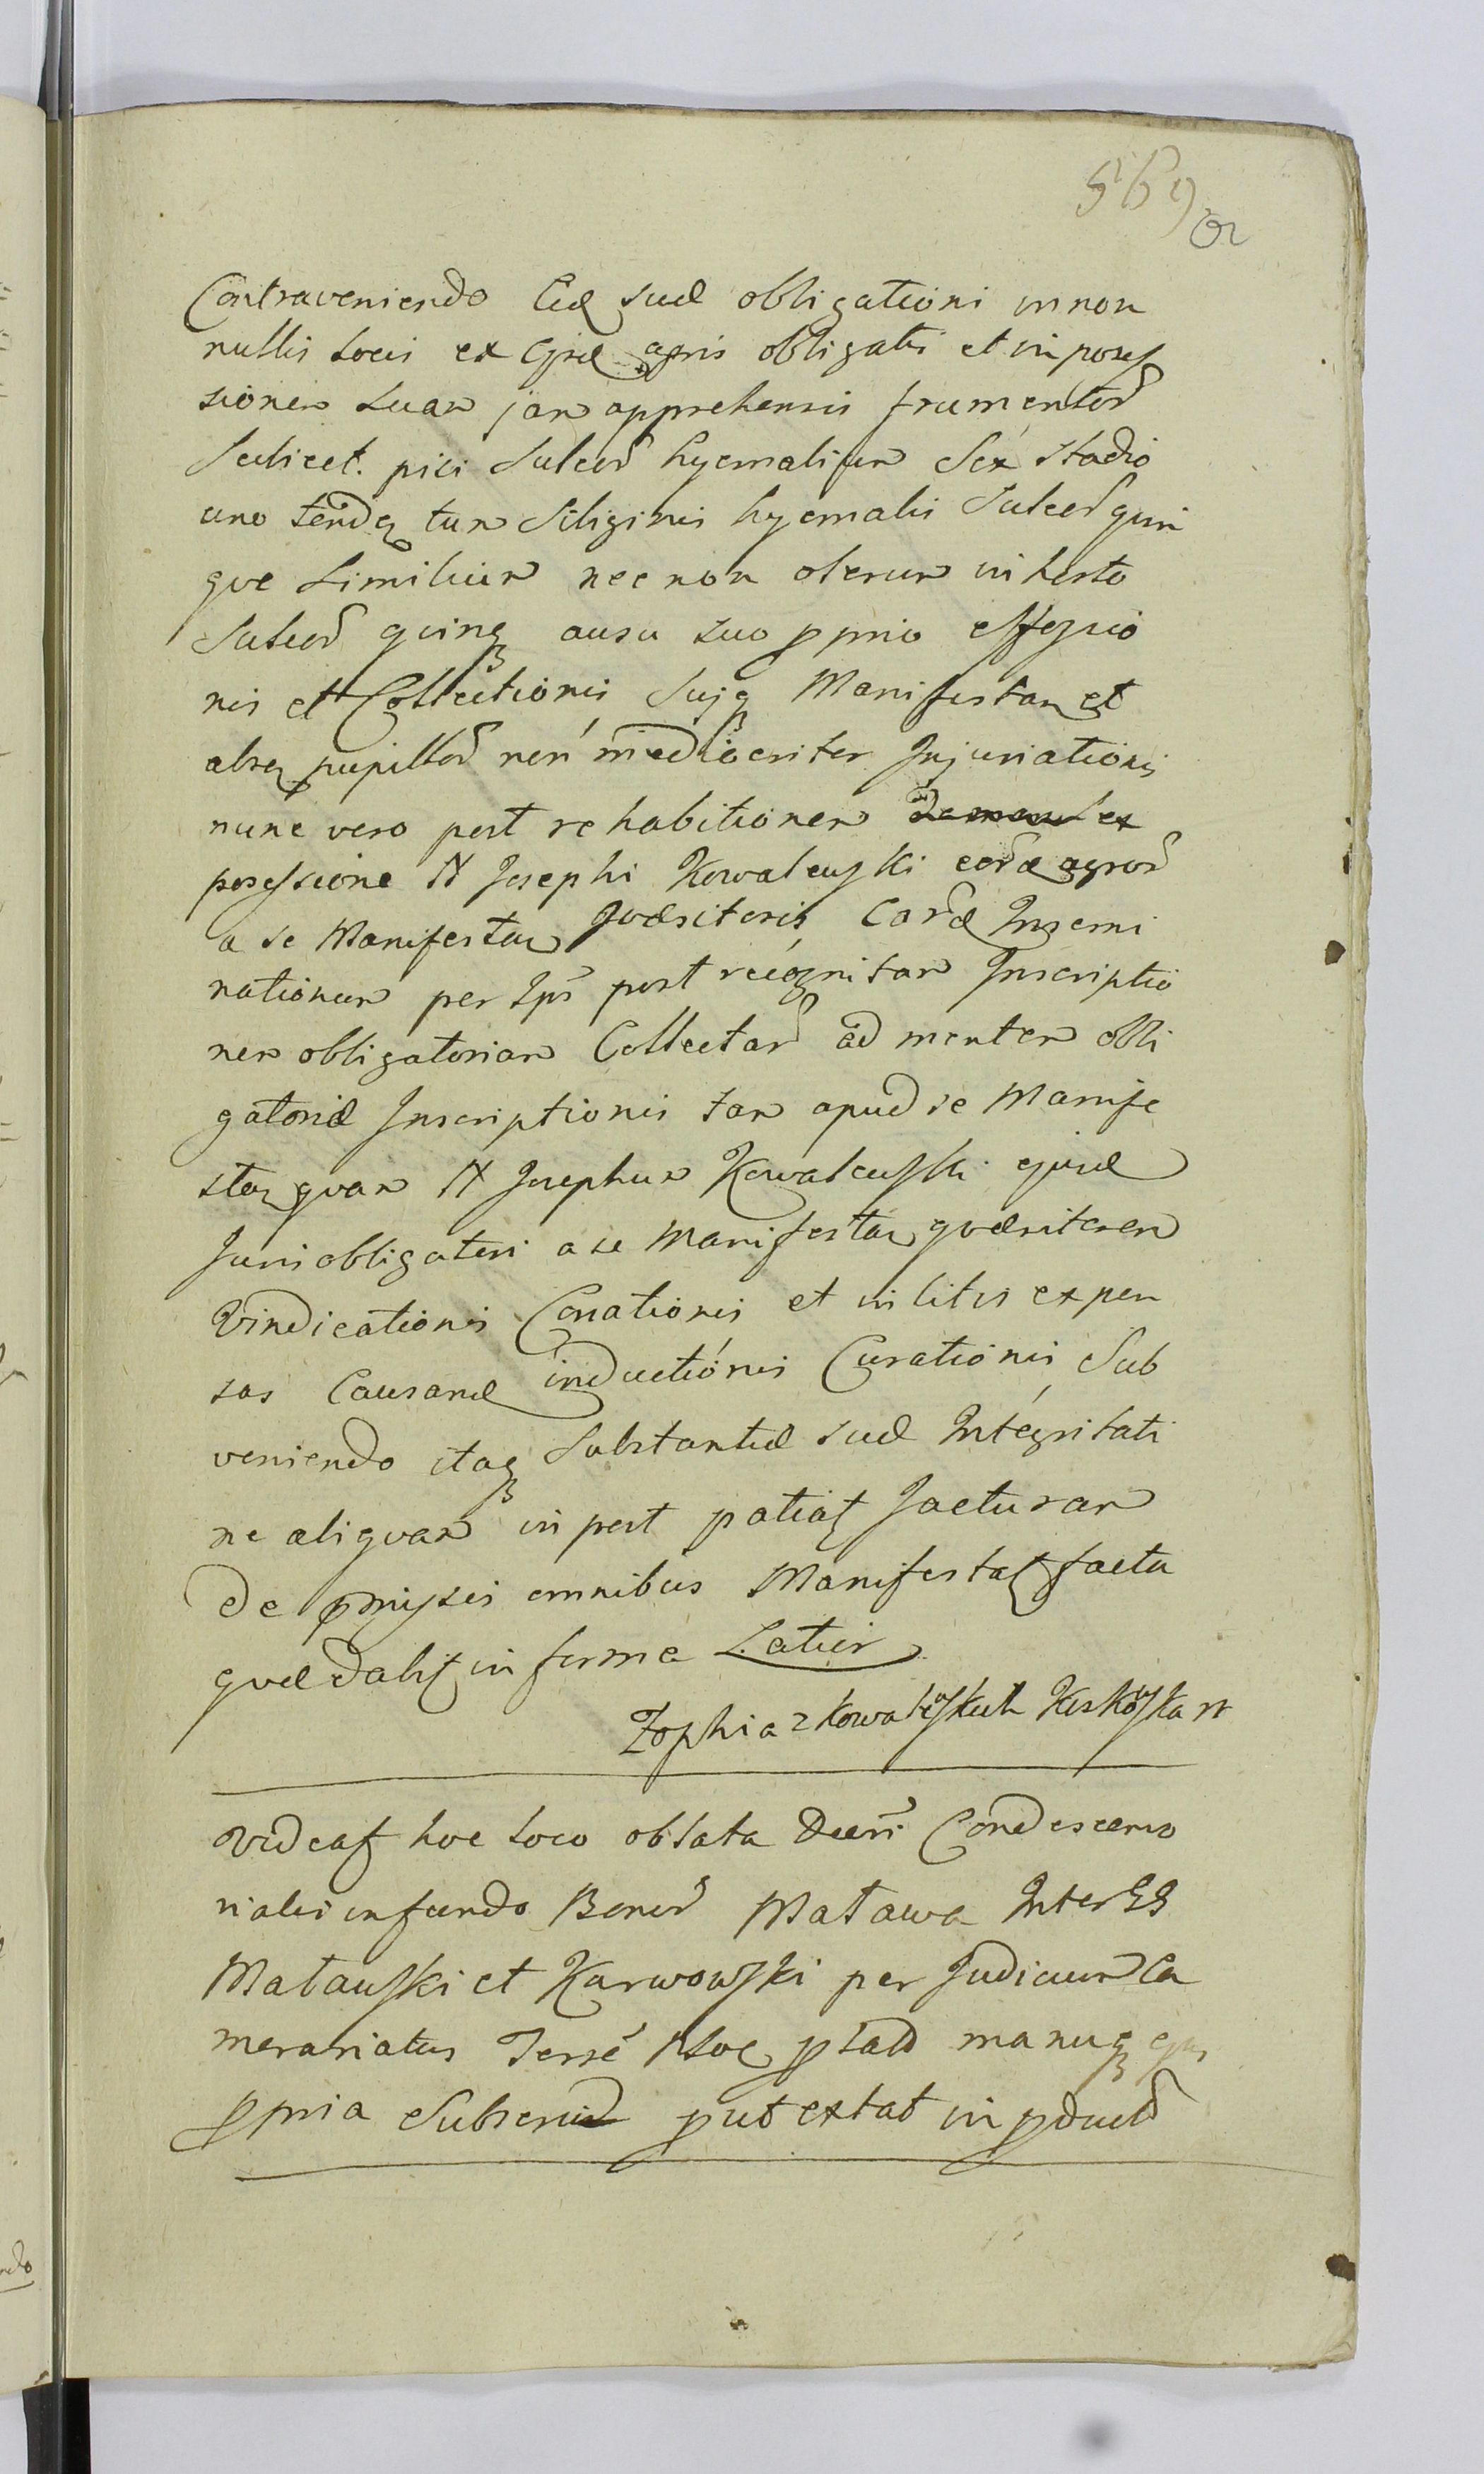 569
Contraveniendo Eid suæ obligationi in non
nullis locis ex Ejsd agris obligatis et in posses
sionem suam jam apprehensis frumentor
Scilicet pisi Sulcor hyemalium Sex Stadio
uno tendę tum Siliginis hyemalis Sulcor quin
qve Similium nec non olerum in horto
Sulcor quinq ausu suo pprio
nis et Collectionis Suijq Manifestan et
absq pupillor non mediocriter Injuriationis
nunc vero post rehabitionem ex
possessione N Josephi Kowalewski eord agror
a se Manifestan qvæsitoris eard Insemi
nationum per Ips post recognitam Inscriptio
nem obligatoriam Collectar ad mentem obli
gatoriæ Inscriptionis tam apud se Manife
stan qvam N Josephum Kowalewski ejusd
Juris obligatori a se Manifestan qvæsitorem
Vindicationis Conationis et in litis expen
sas Causand inductionis Curationis Sub
veniendo itaq Substantiæ suæ Integritati
ne aliqvam in post patiat Jacturam
De pmissis omnibus Manifestat facta
qvæ dabit in forma Latiori
Zophia z Kowalewskich Kuskowska N
Videat hoc loco oblata Decri Condescenso
rialis in fundo Bonor Matawa Inter GG
Matawski et Karwowski per Judicium Ca
merariatus Terre Nsoc plat manuq ejus
ppria Subscrip put extat in pduct